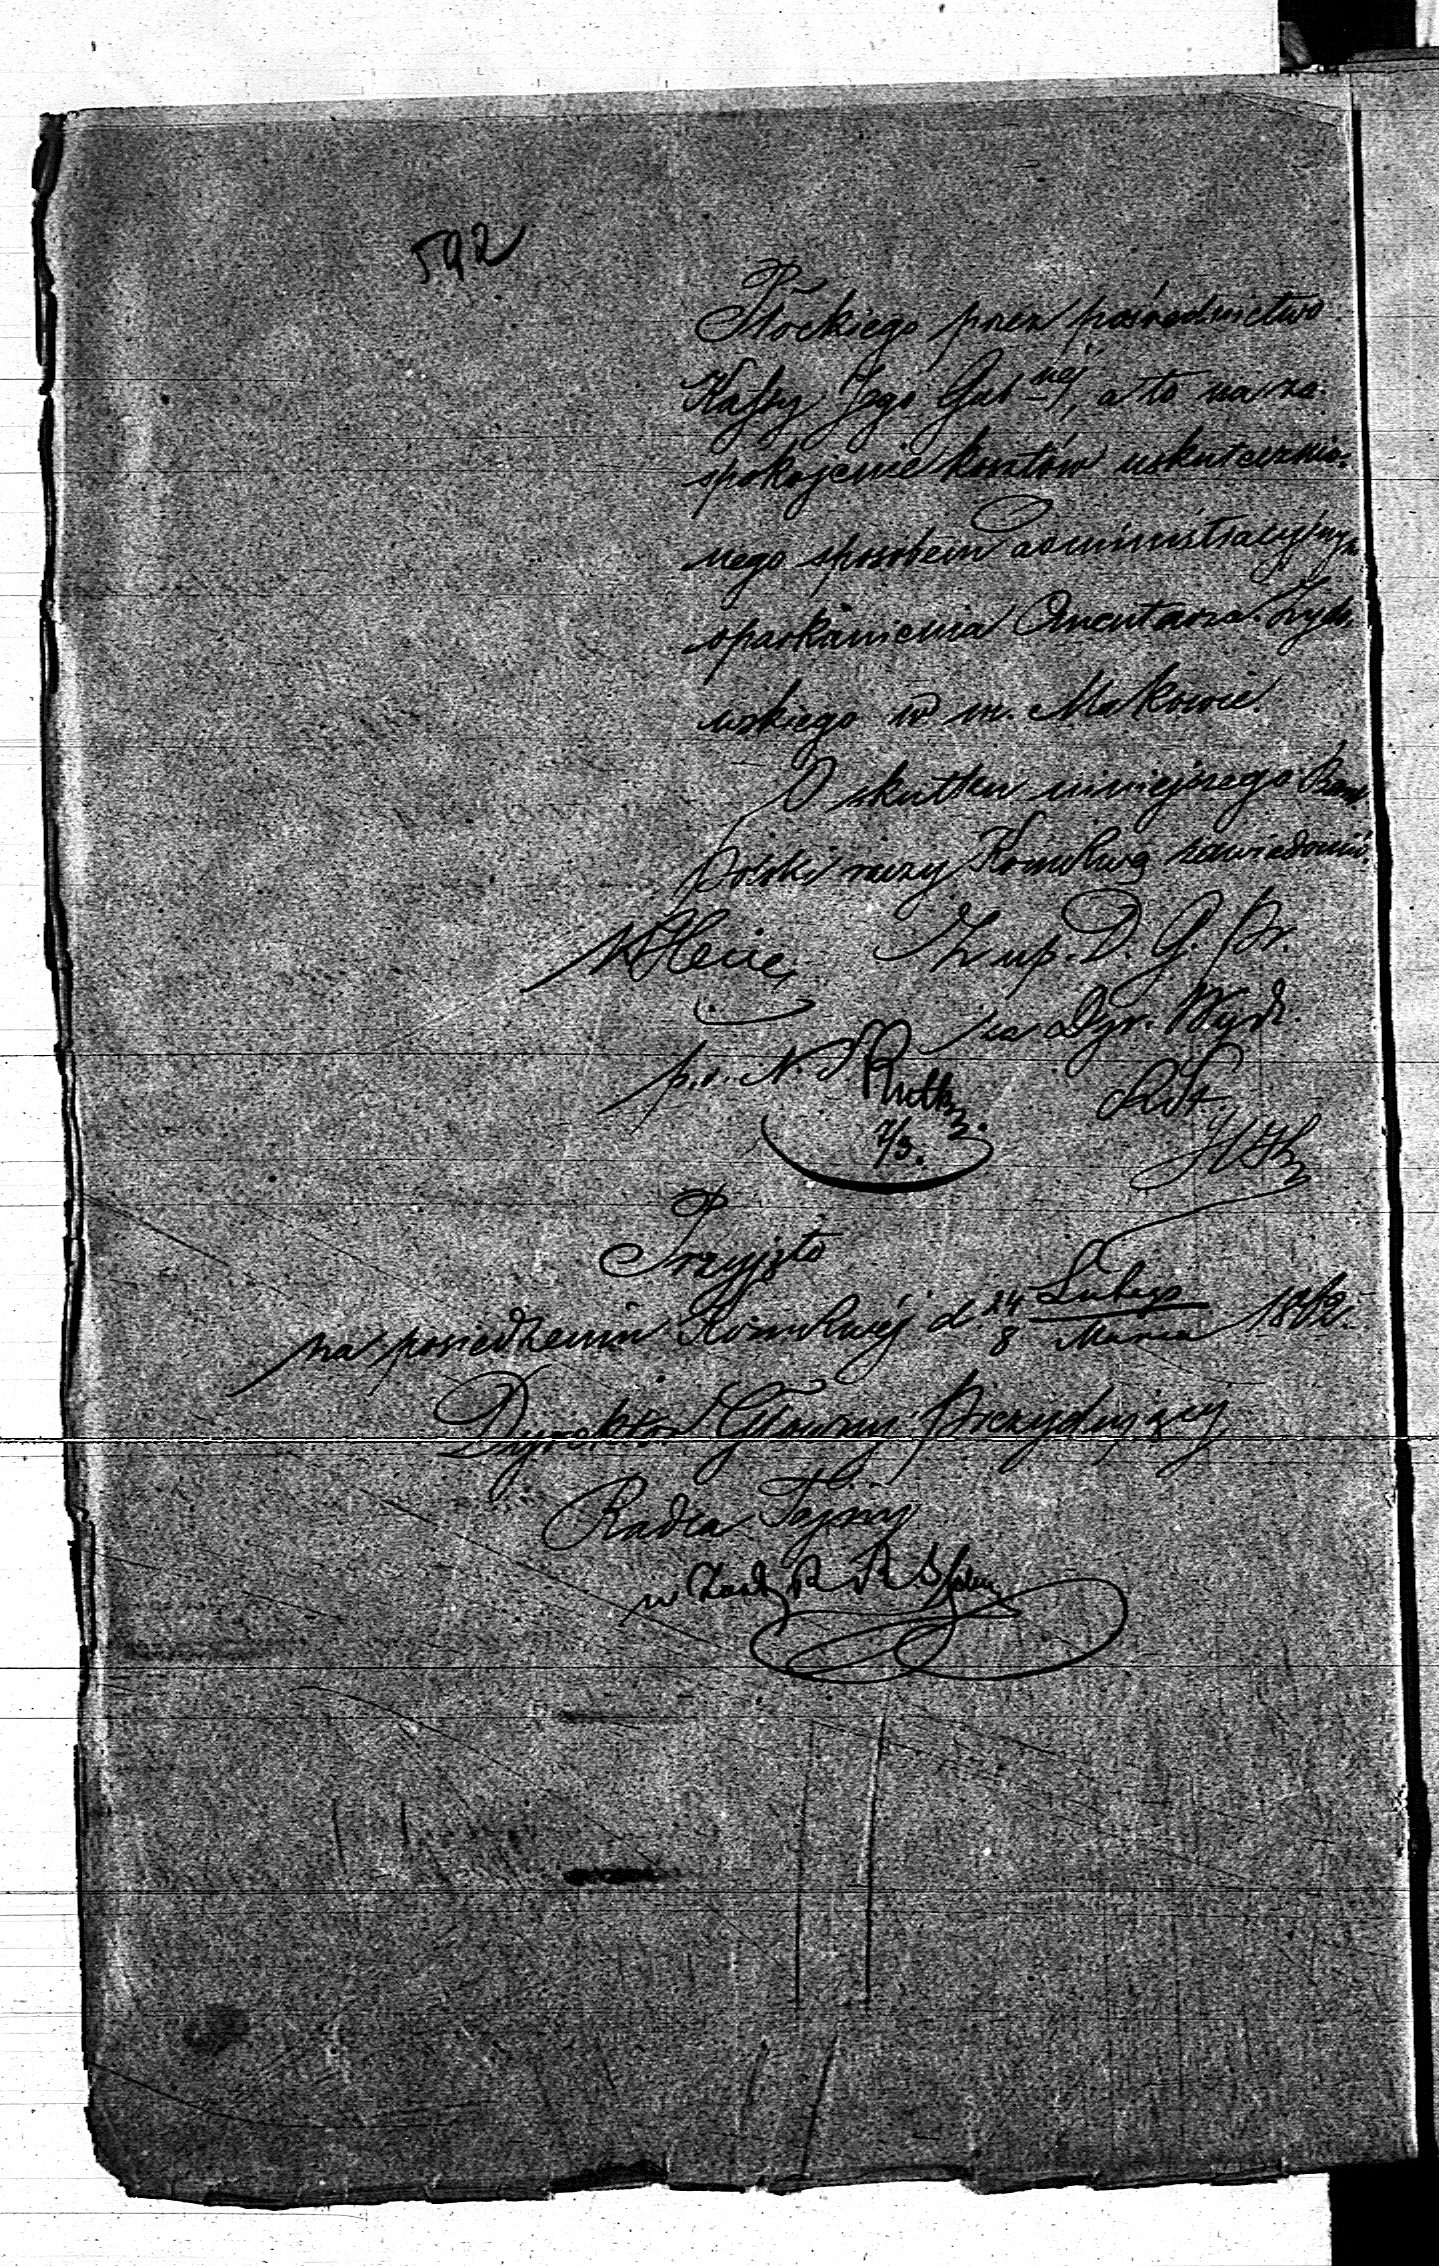 592
Płockiego przez pośrednictwo
Kassy Jego Gub-nej, a to na za-
spokojenie kosztów uskutecznio-
nego sposobem administracyjnym
oparkanienia Cmentarza Żydo-
wskiego w m. Makowie.
O skutku niniejszego Bank
Polski raczy Kom. Rwą zawiadomić.
Z up. D. G. Pr.
za Dyr. Wydz.
p.o. N. S.
7/3.
Przyjęto
na posiedzeniu Kom. Rwéj d 24 Lutego
8 Marca 1842.
Dyrektor Główny Prezydujący
Radca Tajny